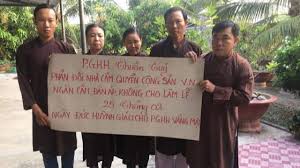 P.G.H.H. Thuần Tuý
PHẢN ĐỐI NHÀ CẦM QUYỀN CỘNG SẢN V.N
NGĂN CẤM, ĐÀN ÁP, KHÔNG CHO LÀM LỄ
25 tháng 02
NGÀY ĐỨC HUỲNH GIÁO CHỦ P.G.H.H VẮNG MẶT